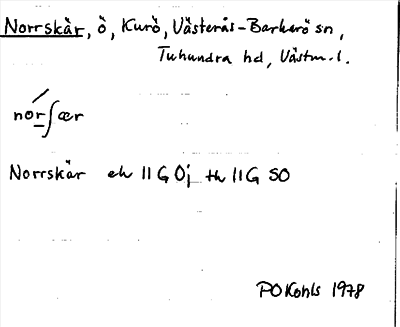 Norrskär, ö, Kurö, Västerås-Barkarö sn,
Tuhundra hd, Västm. l.
norʃær
Norrskär ek 11G 0j th 11G SO
PO Kohls 1978